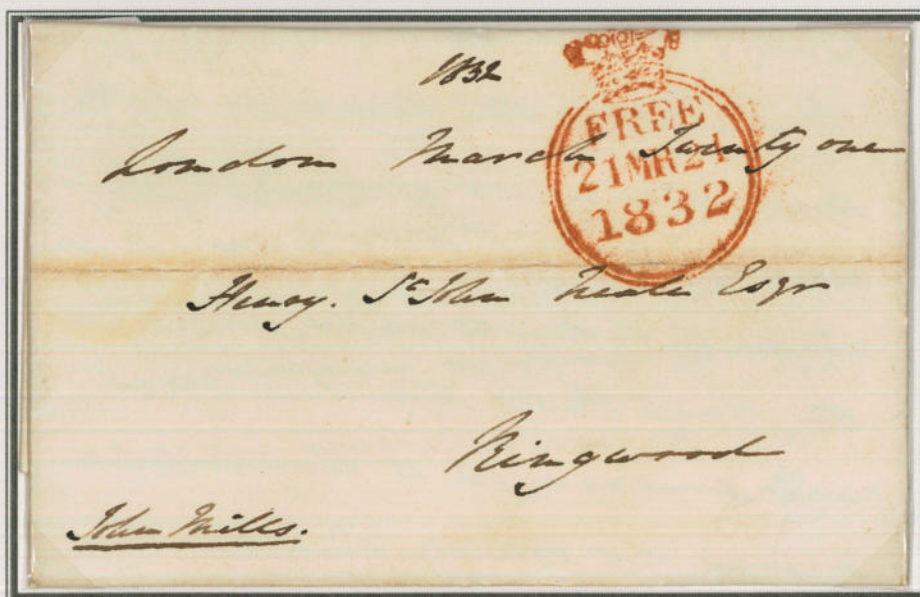 1832
London March Twenty one
FREE
21MR21
1832
Henry. St John Neale Esqr
Ringwood
John Mills.